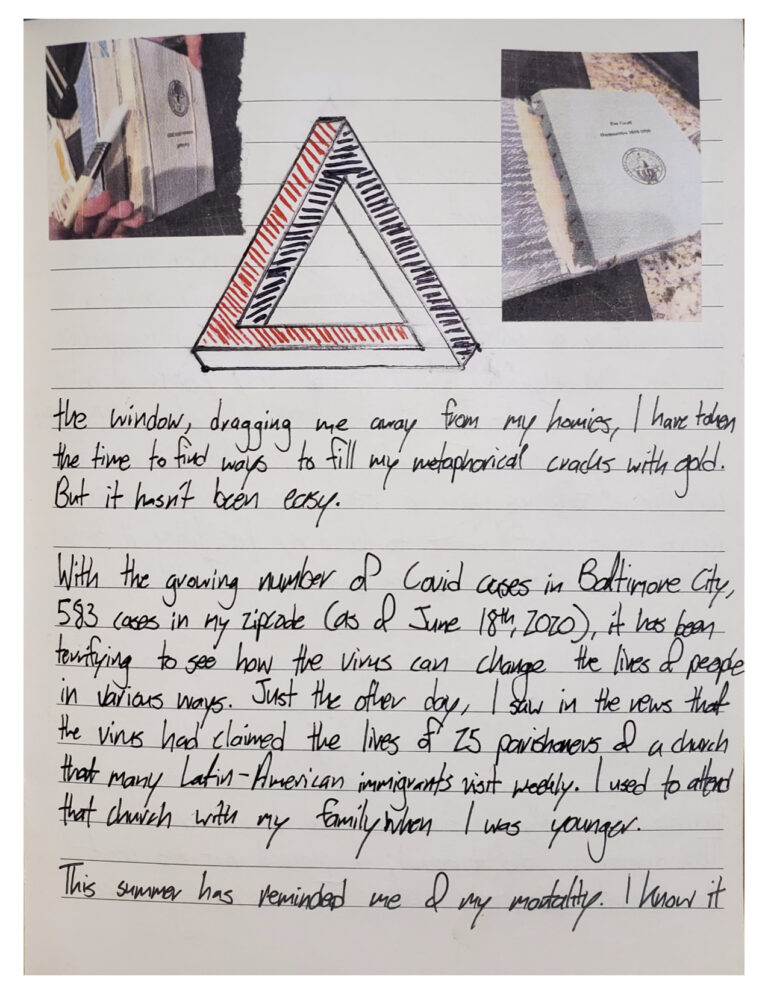 the window, dragging me away from my homies, I have taken
the time to find ways to fill my metaphorical cracks with gold.
But it hasn't been easy.
With the growing number of Covid cases in Baltimore City,
583 cases in my zipcode (as of June 18th, 2020), it has been
terrifying to see how the virus can change the lives of people
in various ways. Just the other day, I saw in the news that
the virus had claimed the lives of 25 parishoners of a church
that many Latin-American immigrants visit weekly. I used to attend
that church with my family when I was younger.
This summer has reminded me of my mortality. I know it